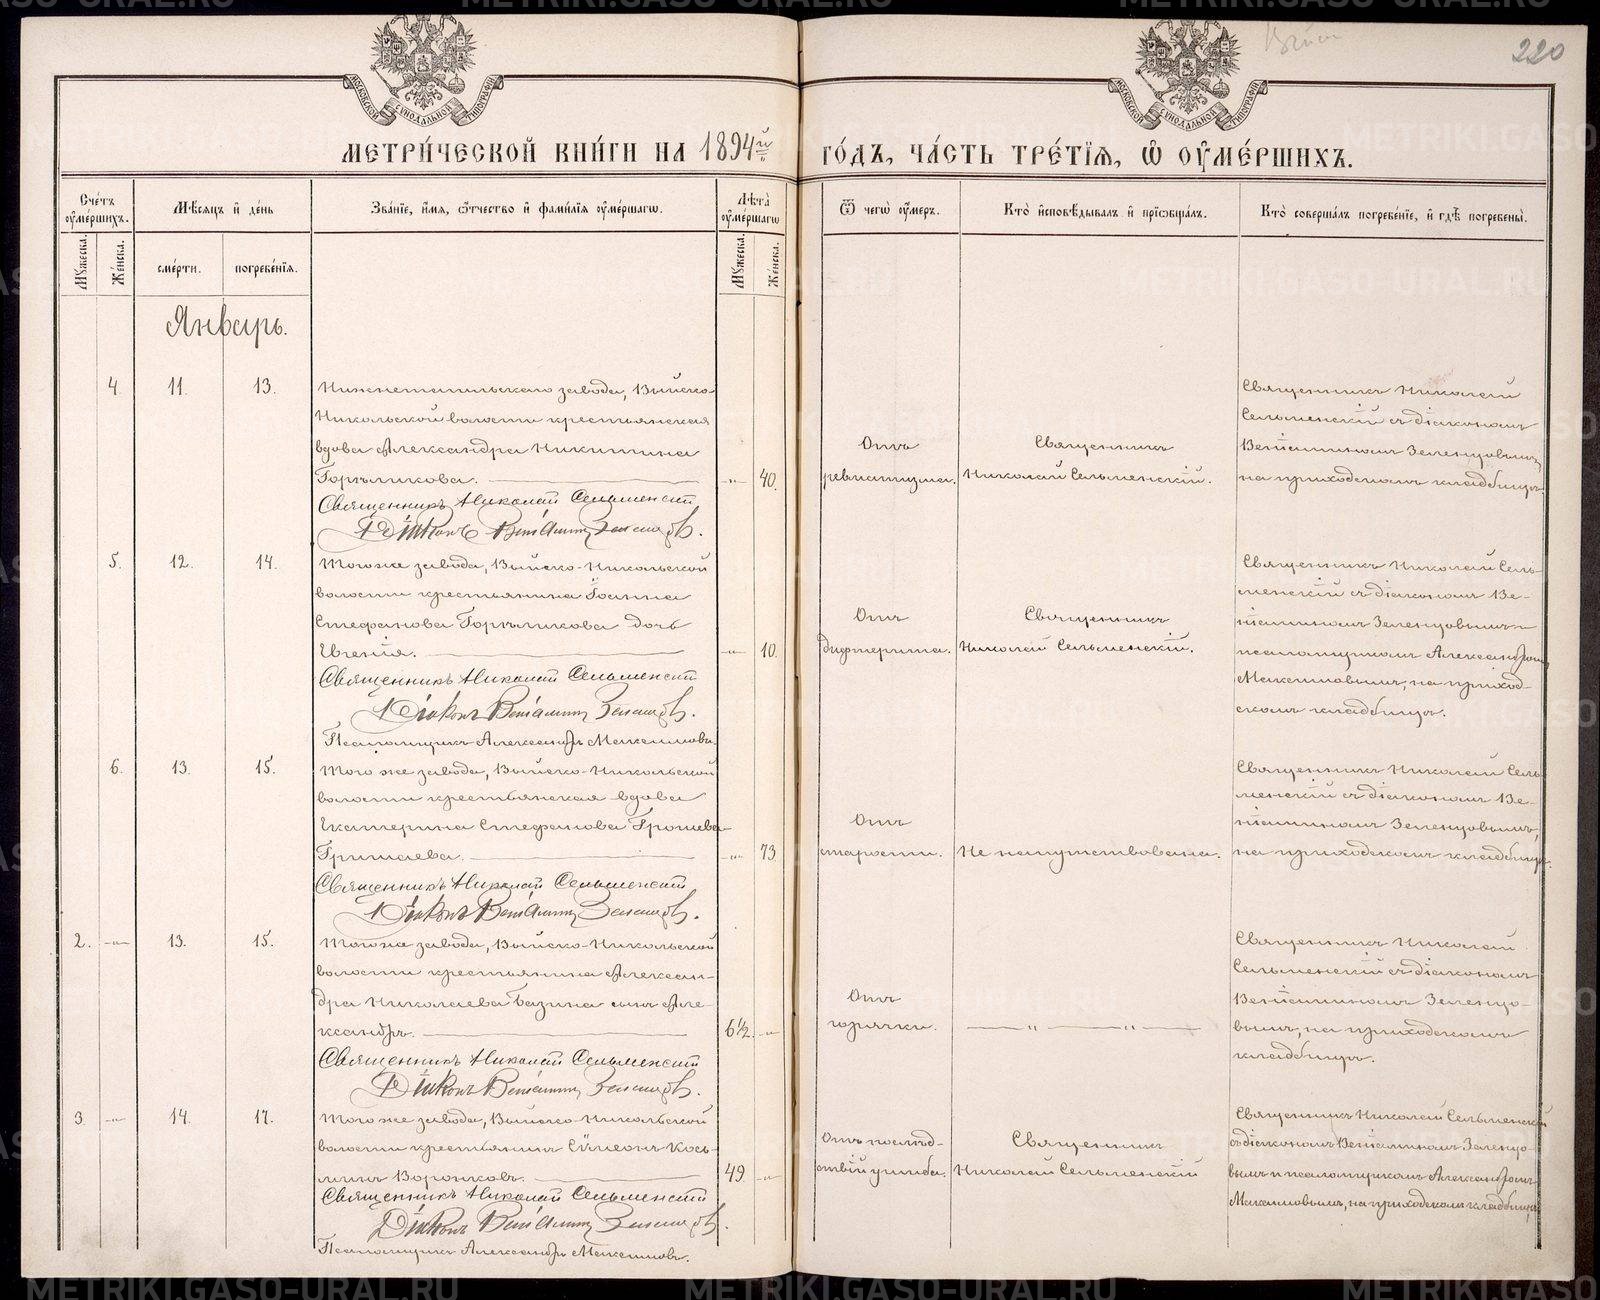 220
МОСКОВСКОЙ СѴНОДАЛЬНОЙ ТИПОГРАФІИ
МОСКОВСКОЙ СѴНОДАЛЬНОЙ ТИПОГРАФІИ
МЕТРИ́ЧЕСКОЙ КНИ́ГИ НА 1894й ГО́ДЪ, ЧА́СТЬ ТРЕ́ТІѦ, Ѽ ОУ҆МЕ́РШИХЪ.
Сче́тъ оу҆ме́ршихъ.
Мѣ́сяцъ и҆ де́нь
Зва́нїе, и҆́мя, ѻ҆́тчество и҆ фами́лїя оу҆ме́ршагѡ.
Лѣ́та оу҆ме́ршагѡ
Ѿ чегѡ̀ оу҆́меръ.
Кто̀ и҆сповѣ́дывалъ и҆ прїѡбща́лъ.
Кто̀ соверша́лъ погребе́нїе, и҆ гдѣ̀ погребены̀.
Мꙋ́жеска.
Же́нска.
сме́рти.
погребе́нїя.
Мꙋ́жеска.
Же́нска.
Январь.
4. 11. 13.
Нижнетагильскаго завода, Выйско-
Никольской волости крестьянская
вдова Александра Никитина
Горѣликова.
Священникъ Николай Сельменскій
Діаконъ Веніаминъ Зеленцовъ.
-"- 40.
Отъ
ревматизма.
Священникъ
Николай Сельменскій.
Священникъ Николай
Сельменскій съ діакономъ
Веніаминомъ Зеленцовымъ,
на приходскомъ кладбищѣ.
5. 12. 14.
Того же завода, Выйско-Никольской
волости крестьянина Іоанна
Стефанова Горѣликова дочь
Евгенія.
Священникъ Николай Сельменскій
Діаконъ Веніаминъ Зеленцовъ.
Псаломщикъ Александръ Максимовъ.
-"- 10.
Отъ
дифтерита.
Священникъ
Николай Сельменскій.
Священникъ Николай Сель-
менскій съ діакономъ Ве-
ніаминомъ Зеленцовымъ и
псаломщикомъ Александромъ
Максимовымъ, на приход-
скомъ кладбищѣ.
6. 13. 15.
Того же завода, Выйско-Никольской
волости крестьянская вдова
Екатерина Стефанова Грошева-
Гришаева.
Священникъ Николай Сельменскій
Діаконъ Веніаминъ Зеленцовъ.
-"- 73
Отъ
старости.
Не напутствована.
Священникъ Николай Сель-
менскій съ діакономъ Ве-
ніаминомъ Зеленцовымъ,
на приходскомъ кладбищѣ.
2. -"- 13. 15.
Того же завода, Выйско-Никольской
волости крестьянина Алексан-
дра Николаева Базина сынъ Але-
ксандръ.
Священникъ Николай Сельменскій
Діаконъ Веніаминъ Зеленцовъ.
6½. -"-
Отъ
горячки.
— " — " —
Священникъ Николай
Сельменскій съ діакономъ
Веніаминомъ Зеленцо-
вымъ, на приходскомъ
кладбищѣ.
3. -"- 14. 17.
Того же завода, Выйско-Никольской
волости крестьянинъ Сѵмеонъ Кось-
минъ Воронковъ.
Священникъ Николай Сельменскій
Діаконъ Веніаминъ Зеленцовъ.
Псаломщикъ Александръ Максимовъ.
49 -"-
Отъ послѣд-
ствій ушиба.
Священникъ
Николай Сельменскій
Священникъ Николай Сельменскій
съ діакономъ Веніаминомъ Зеленцо-
вымъ и псаломщикомъ Александромъ
Максимовымъ, на приходскомъ кладбищѣ.
METRIKI.GASO-URAL.RU